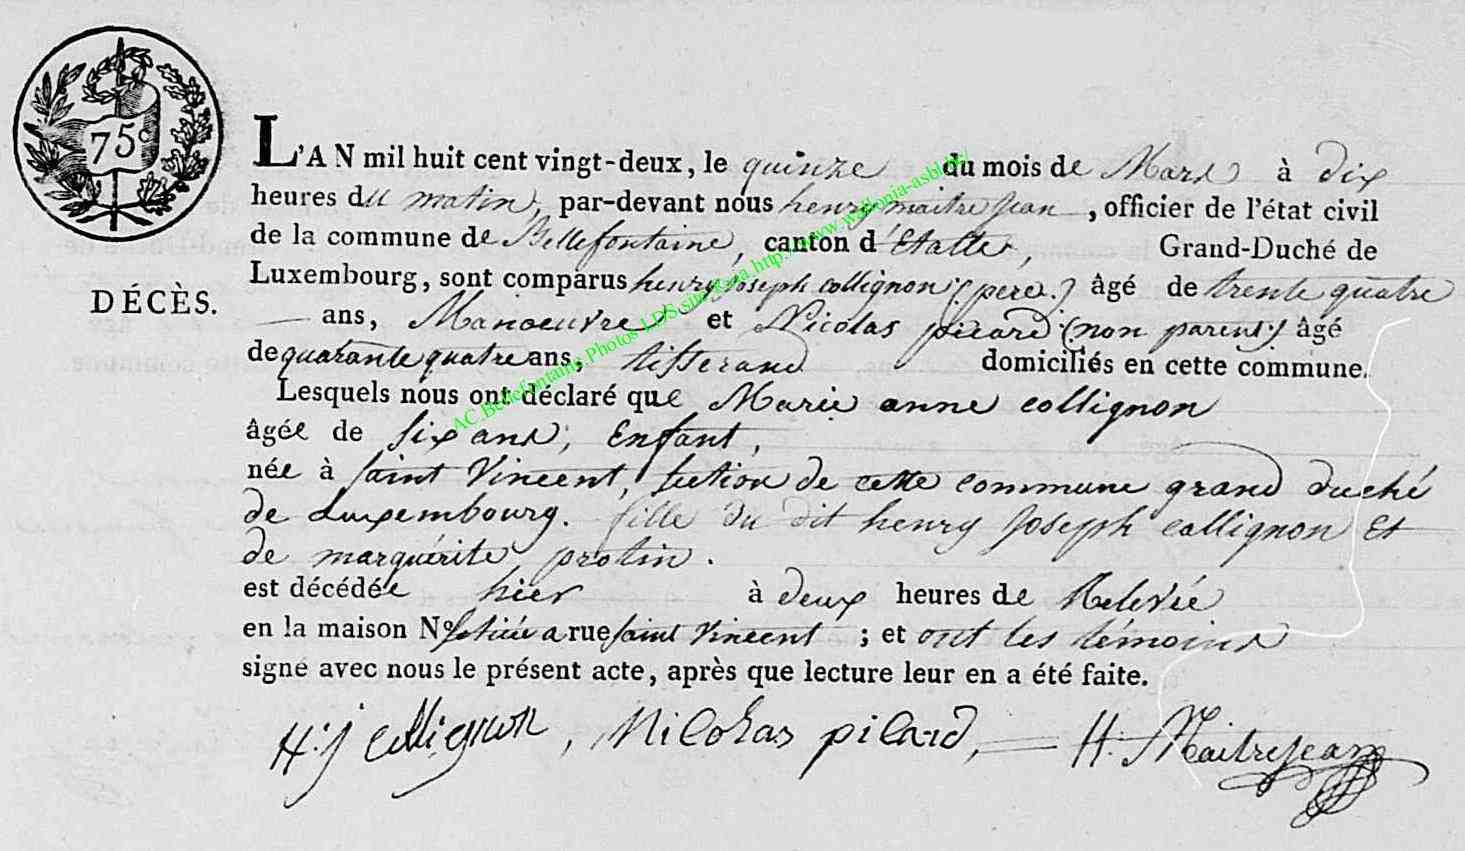 75c
L'AN mil huit cent vingt-deux, le quinze du mois de Mars à dix
heures du matin, par-devant nous henry maitrejean, officier de l'état civil
de la commune de Bellefontaine, canton d'Etalle, Grand-Duché de
Luxembourg, sont comparus henry joseph collignon (pere.) âgé de trente quatre
DÉCÈS.
ans, Manoeuvre et Nicolas picard (non parent) âgé
de quarante quatre ans, tisserand domiciliés en cette commune.
Lesquels nous ont déclaré que Marie anne collignon
âgée de six ans, Enfant,
née à saint Vincent, section de cette commune grand duché
de Luxembourg. fille du dit henry joseph collignon Et
de marguérite protin.
est décédée hier à deux heures de Relevée
en la maison N° située a rue saint Vincent ; et ont les témoins
signé avec nous le présent acte, après que lecture leur en a été faite.
H:j collignon, Nicolas picard, H. Maitrejean
AC Bellefontaine Photos LDS sur http://www.wallonia-asbl.be/